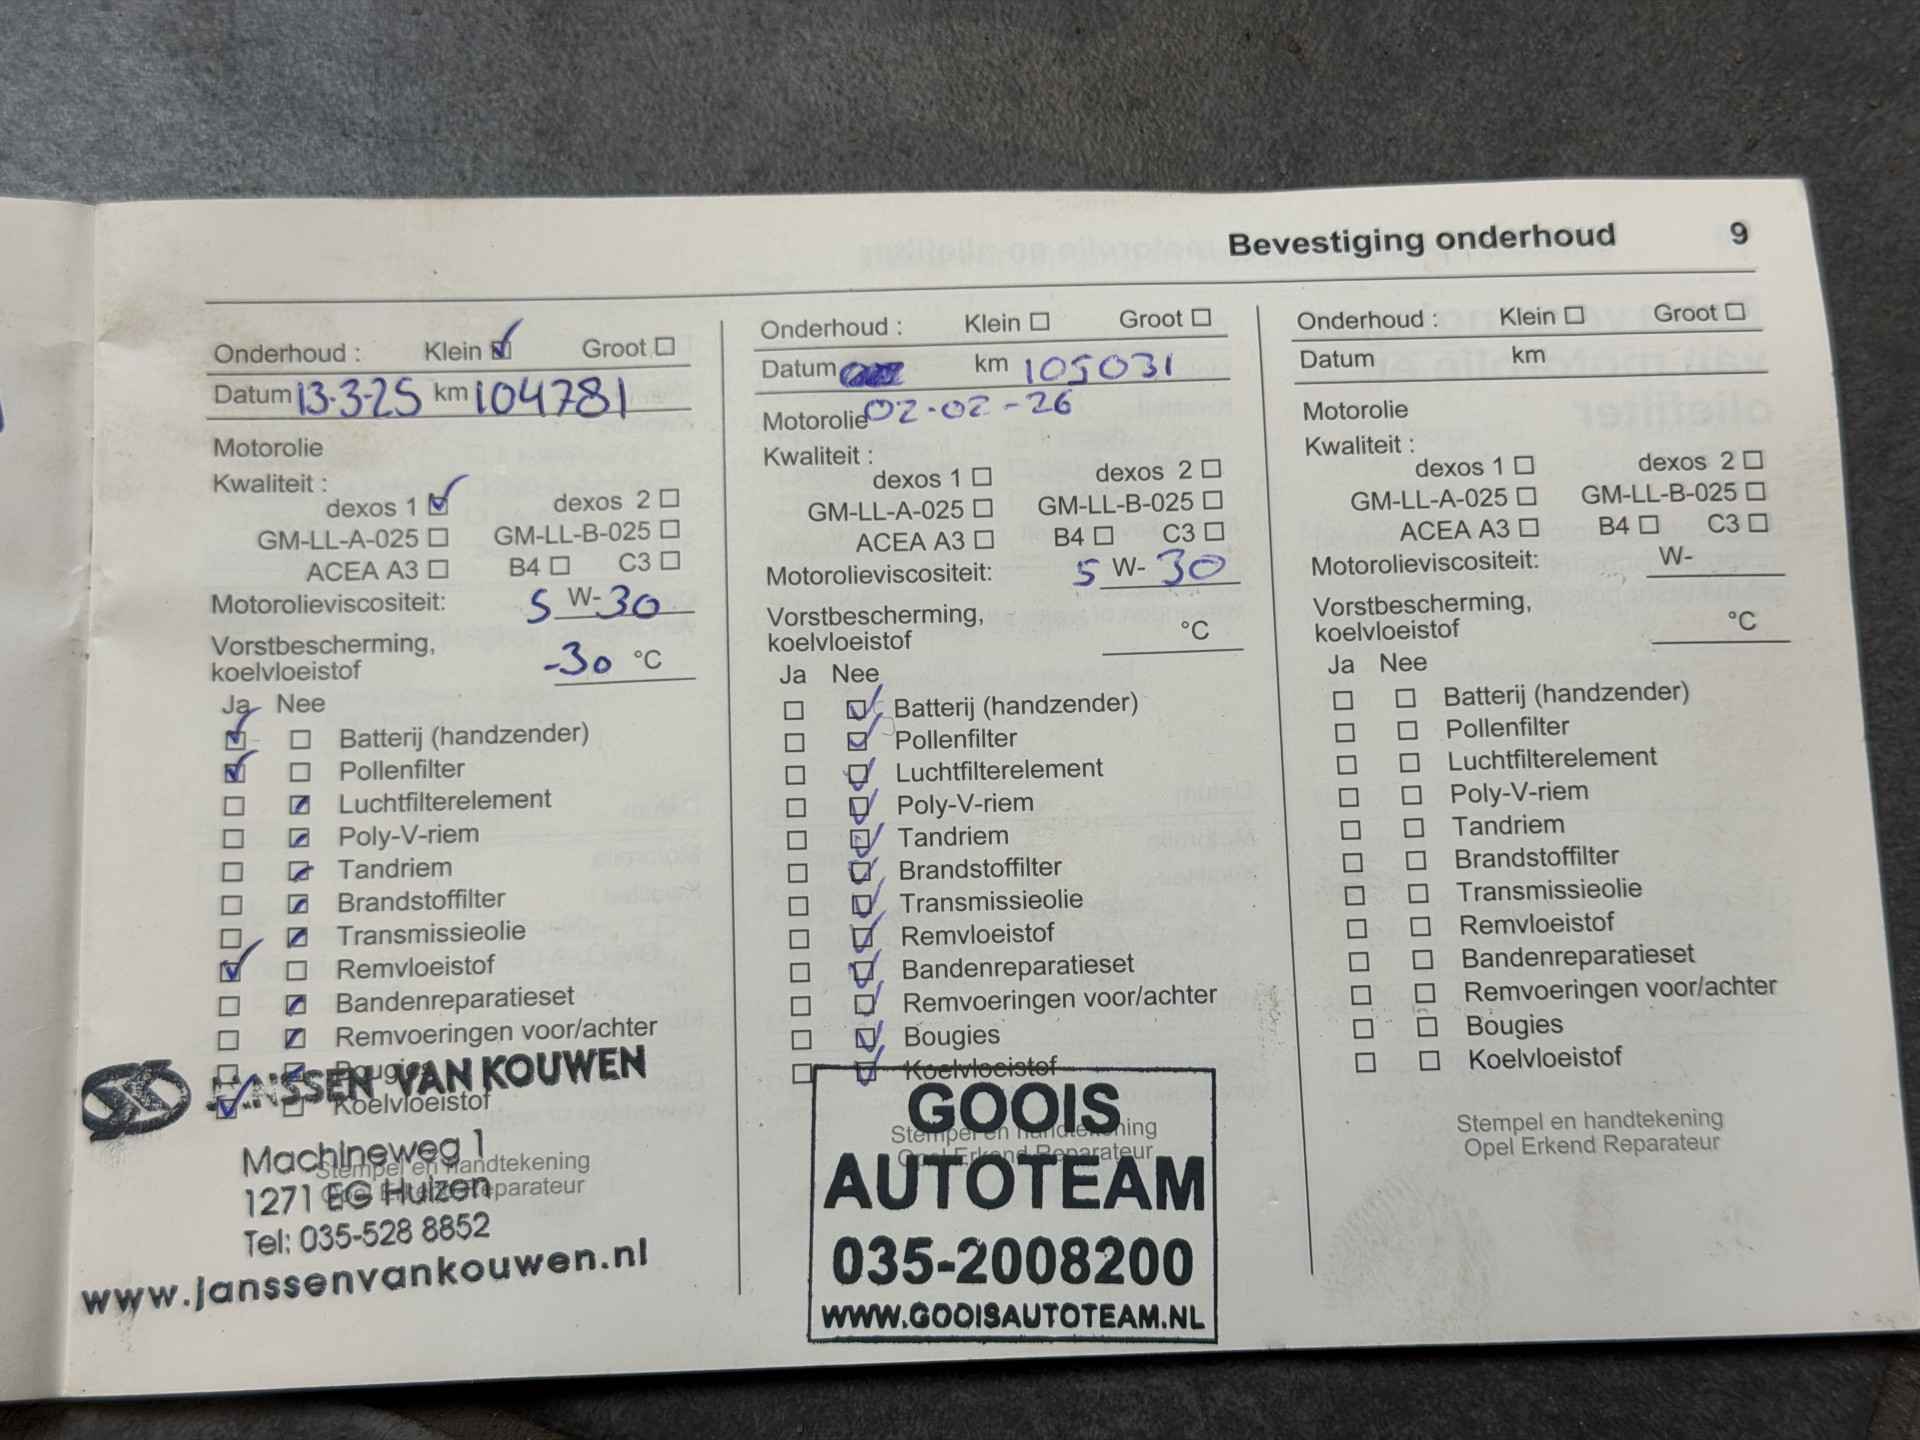 Bevestiging onderhoud 9
Onderhoud : Klein Groot
Datum 13-3-25 km 104781
Motorolie
Kwaliteit :
dexos 1 dexos 2
GM-LL-A-025 GM-LL-B-025
ACEA A3 B4 C3
Motorolieviscositeit: 5 W-30
Vorstbescherming,
koelvloeistof -30 °C
Ja Nee
Batterij (handzender)
Pollenfilter
Luchtfilterelement
Poly-V-riem
Tandriem
Brandstoffilter
Transmissieolie
Remvloeistof
Bandenreparatieset
Remvoeringen voor/achter
Bougies
Koelvloeistof
JANSSEN VAN KOUWEN
Machineweg 1
1271 EG Huizen
Tel: 035-528 8852
www.janssenvankouwen.nl
Stempel en handtekening
Opel Erkend Reparateur
Onderhoud : Klein Groot
Datum km 105031
Motorolie 02-02-26
Kwaliteit :
dexos 1 dexos 2
GM-LL-A-025 GM-LL-B-025
ACEA A3 B4 C3
Motorolieviscositeit: 5 W-30
Vorstbescherming,
koelvloeistof °C
Ja Nee
Batterij (handzender)
Pollenfilter
Luchtfilterelement
Poly-V-riem
Tandriem
Brandstoffilter
Transmissieolie
Remvloeistof
Bandenreparatieset
Remvoeringen voor/achter
Bougies
Koelvloeistof
Stempel en handtekening
Opel Erkend Reparateur
GOOIS
AUTOTEAM
035-2008200
WWW.GOOISAUTOTEAM.NL
Onderhoud : Klein Groot
Datum km
Motorolie
Kwaliteit :
dexos 1 dexos 2
GM-LL-A-025 GM-LL-B-025
ACEA A3 B4 C3
Motorolieviscositeit: W-
Vorstbescherming,
koelvloeistof °C
Ja Nee
Batterij (handzender)
Pollenfilter
Luchtfilterelement
Poly-V-riem
Tandriem
Brandstoffilter
Transmissieolie
Remvloeistof
Bandenreparatieset
Remvoeringen voor/achter
Bougies
Koelvloeistof
Stempel en handtekening
Opel Erkend Reparateur